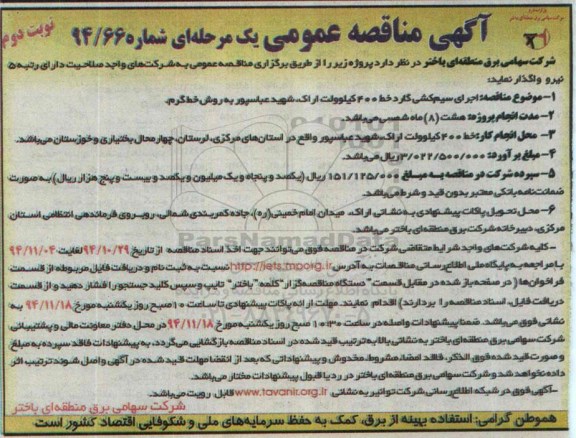 آگهی مناقصه عمومی یک مرحله‌ای شماره ۹۴/۶۶
نوبت دوم
شرکت سهامی برق منطقه‌ای باختر در نظر دارد پروژه زیر را از طریق برگزاری مناقصه عمومی به شرکت‌های واجد صلاحیت دارای رتبه ۵
نیرو واگذار نماید:
۱- موضوع مناقصه: اجرای سیم‌کشی گارد خط ۴۰۰ کیلوولت اراک، شهید عباسپور به روش خط گرم.
۲- مدت انجام پروژه: هشت (۸) ماه شمسی می‌باشد.
۳- محل انجام کار: خط ۴۰۰ کیلوولت اراک، شهید عباسپور واقع در استان‌های مرکزی، لرستان، چهارمحال بختیاری و خوزستان می‌باشد.
۴- مبلغ برآورد: ۳/۰۲۲/۵۰۰/۰۰۰ ریال می‌باشد.
۵- سپرده شرکت در مناقصه به مبلغ ۱۵۱/۱۲۵/۰۰۰ ریال (یکصد و پنجاه و یک میلیون و یکصد و بیست و پنج هزار ریال) به صورت
ضمانت‌نامه بانکی معتبر بدون قید و شرط می‌باشد.
۶- محل تحویل پاکات پیشنهادی به نشانی اراک، میدان امام خمینی(ره)، جاده کمربندی شمالی، روبروی فرماندهی انتظامی استان
مرکزی، دبیرخانه شرکت برق منطقه‌ای باختر می‌باشد.
- کلیه شرکت‌های واجد شرایط متقاضی شرکت در مناقصه فوق می‌توانند جهت اخذ اسناد مناقصه از تاریخ ۹۴/۱۰/۲۹ لغایت ۹۴/۱۱/۰۴
با مراجعه به پایگاه ملی اطلاع‌رسانی مناقصات به آدرس http://iets.mporg.ir نسبت به ثبت نام و دریافت فایل مربوطه از قسمت
فراخوان‌ها (در صفحه باز شده در مقابل قسمت" دستگاه مناقصه‌گزار" کلمه "باختر" تایپ و سپس کلید جستجو را فشار دهید و از قسمت
دریافت فایل، اسناد مناقصه را بردارند) اقدام نمایند. مهلت ارائه پاکات پیشنهادی تا ساعت ۱۰ صبح روز یکشنبه مورخ ۹۴/۱۱/۱۸ به
نشانی فوق می‌باشد. ضمنا پیشنهادات واصله در ساعت ۱۰:۳۰ صبح روز یکشنبه مورخ ۹۴/۱۱/۱۸ در محل دفتر معاونت مالی و پشتیبانی
شرکت سهامی برق منطقه‌ای باختر به نشانی بالا به ترتیب قید شده در اسناد مناقصه بازگشایی می‌گردد. به پیشنهادات فاقد سپرده به مبلغ
و صورت قید شده فوق الذکر، فاقد امضا، مشروط، مخدوش و پیشنهاداتی که بعد از انقضا مهلت قید شده در آگهی واصل شوند ترتیب اثر
داده نخواهد شد و شرکت سهامی برق منطقه‌ای باختر در رد یا قبول پیشنهادات مختار می‌باشد.
- آگهی فوق در شبکه اطلاع‌رسانی شرکت توانیر به نشانی www.tavanir.org.ir قابل رویت می‌باشد.
شرکت سهامی برق منطقه‌ای باختر
هموطن گرامی: استفاده بهینه از برق، کمک به حفظ سرمایه‌های ملی و شکوفایی اقتصاد کشور است.